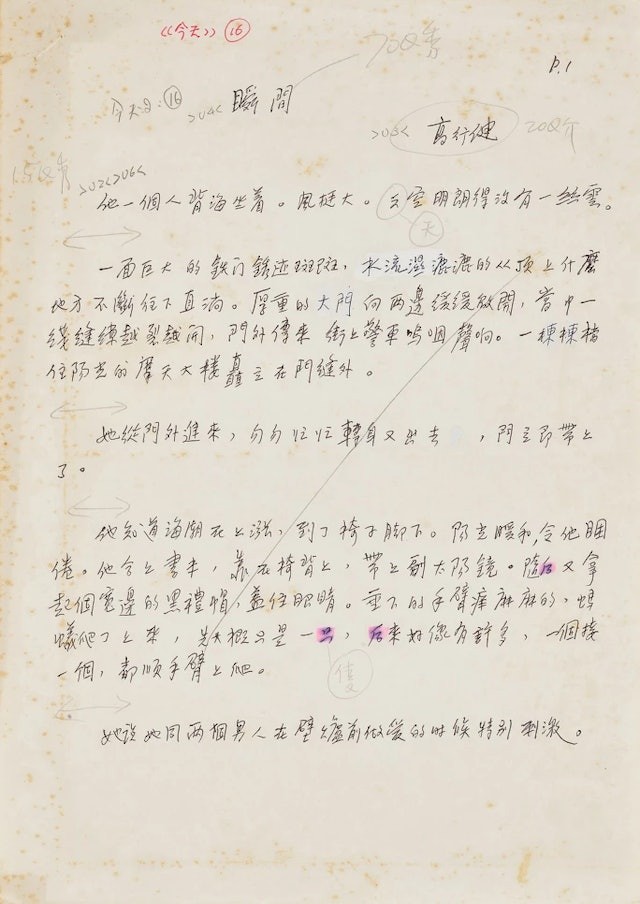 《今天》 16
70Q秀
P.1
今天2:16
瞬間
高行健
20Q介
15Q秀
他一個人背海坐着。風挺大。天空明朗得没有一絲雲。
天
一面巨大的鉄门銹迹斑斑,水流濕漉漉的从顶上什麼
地方不斷往下直淌。厚重的大門向两邊緩緩敞開,當中一
綫縫繚越裂越開,門外傳来街上警車鳴咽聲响。一棟棟檔
住陽光的摩天大楼矗立在門縫外。
她從門外進来,匆匆忙忙轉身又出去,門立即带上
了。
他知道海潮在上漲,到了椅子脚下。陽光暖和,令他睏
倦。他合上書本,靠在椅背上,带上副太陽鏡。隨后又拿
起個寬邊的黑禮帽,蓋住眼睛。垂下的手臂痒麻麻的,螞
蟻爬了上来,先大概只是一只,后来好像有許多,一個接
一個,都順手臂上爬。
隻
她说她同两個男人在壁爐前做爱的时候特别刺激。